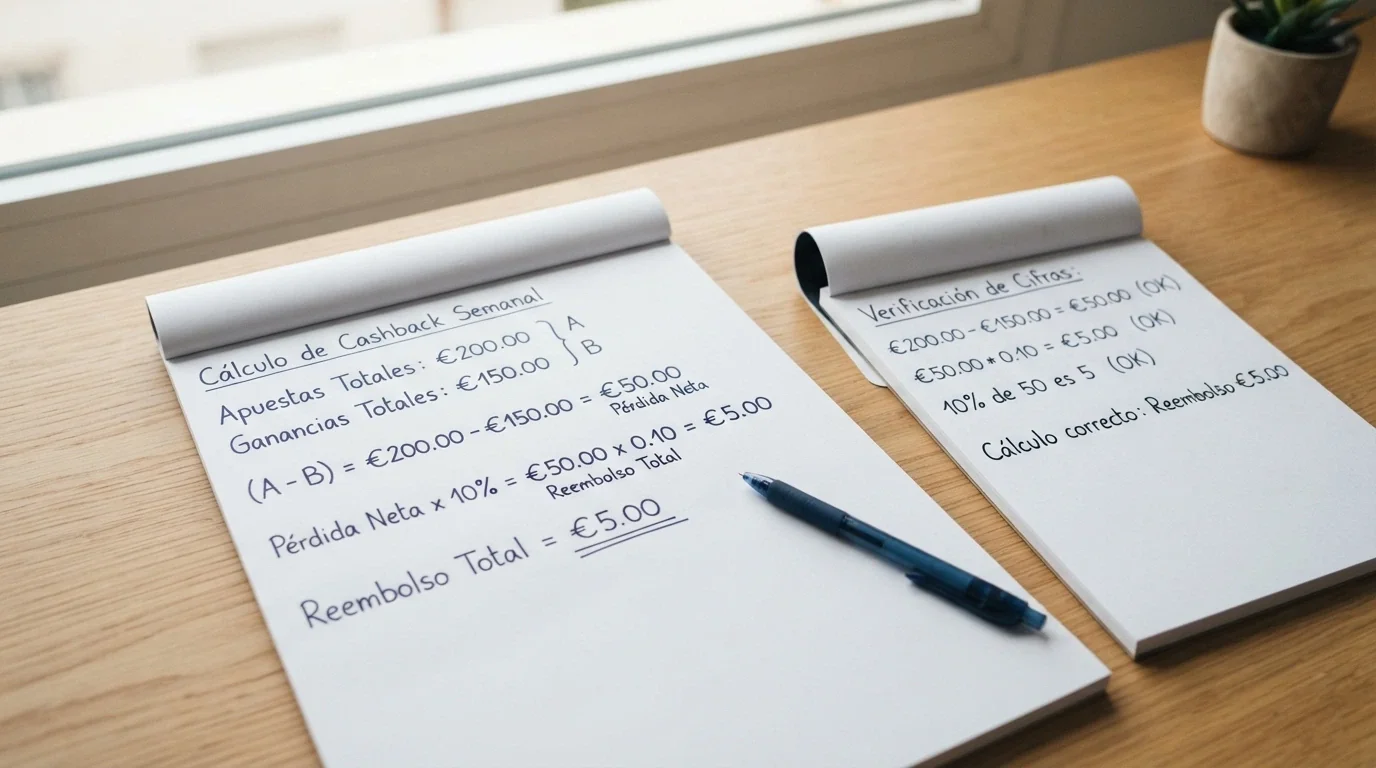 Cálculo de Cashback Semanal
Apuestas Totales: €200.00 } A
Ganancias Totales: €150.00 } B
(A - B) = €200.00 - €150.00 = €50.00
Pérdida Neta
Pérdida Neta x 10% = €50.00 x 0.10 = €5.00
Reembolso Total
Reembolso Total = €5.00
Verificación de Cifras:
€200.00 - €150.00 = €50.00 (OK)
€50.00 * 0.10 = €5.00 (OK)
10% de 50 es 5 (OK)
Cálculo correcto: Reembolso €5.00